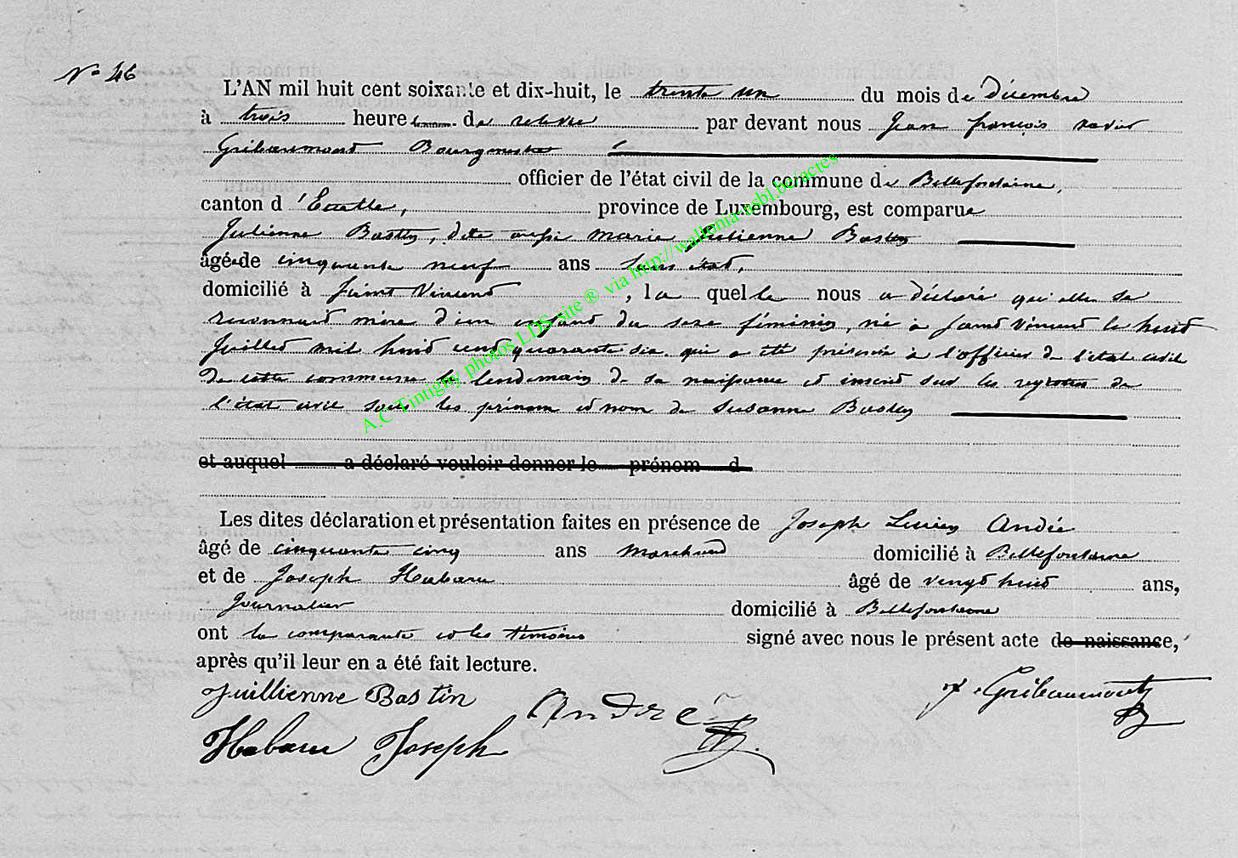 N° 46
L'AN mil huit cent soixante et dix-huit, le trente un du mois de décembre
à trois heure de relevée par devant nous Jean françois xavier
Gribaumont Bourgmestre
officier de l'état civil de la commune de Bellefontaine,
canton d'Etalle, province de Luxembourg, est comparue
Julienne Bastin, dite aussi Marie Julienne Bastin
âgé de cinquante neuf ans sans état,
domicilié à Saint Vincent, la quelle nous a déclaré qu'elle se
reconnait mère d'un enfant du sexe féminin, né à Saint Vincent le huit
Juillet mil huit cent quarante six qui a été présenté à l'officier de l'état civil
de cette commune le lendemain de sa naissance et inscrit sur les registres de
l'état civil sous les prénom et nom de Susanne Bastin
et auquel a déclaré vouloir donner le prénom d
Les dites déclaration et présentation faites en présence de Joseph Lucien André
âgé de cinquante cinq ans marchand domicilié à Bellefontaine
et de Joseph Habaru âgé de vingt huit ans,
Journalier domicilié à Bellefontaine
ont la comparante et les témoins signé avec nous le présent acte de naissance,
après qu'il leur en a été fait lecture.
Juillienne Bastin André Gribaumont
Habaru Joseph
A.C Tintigny photos LDS site ® via http://wallonia-asbl.be/actes